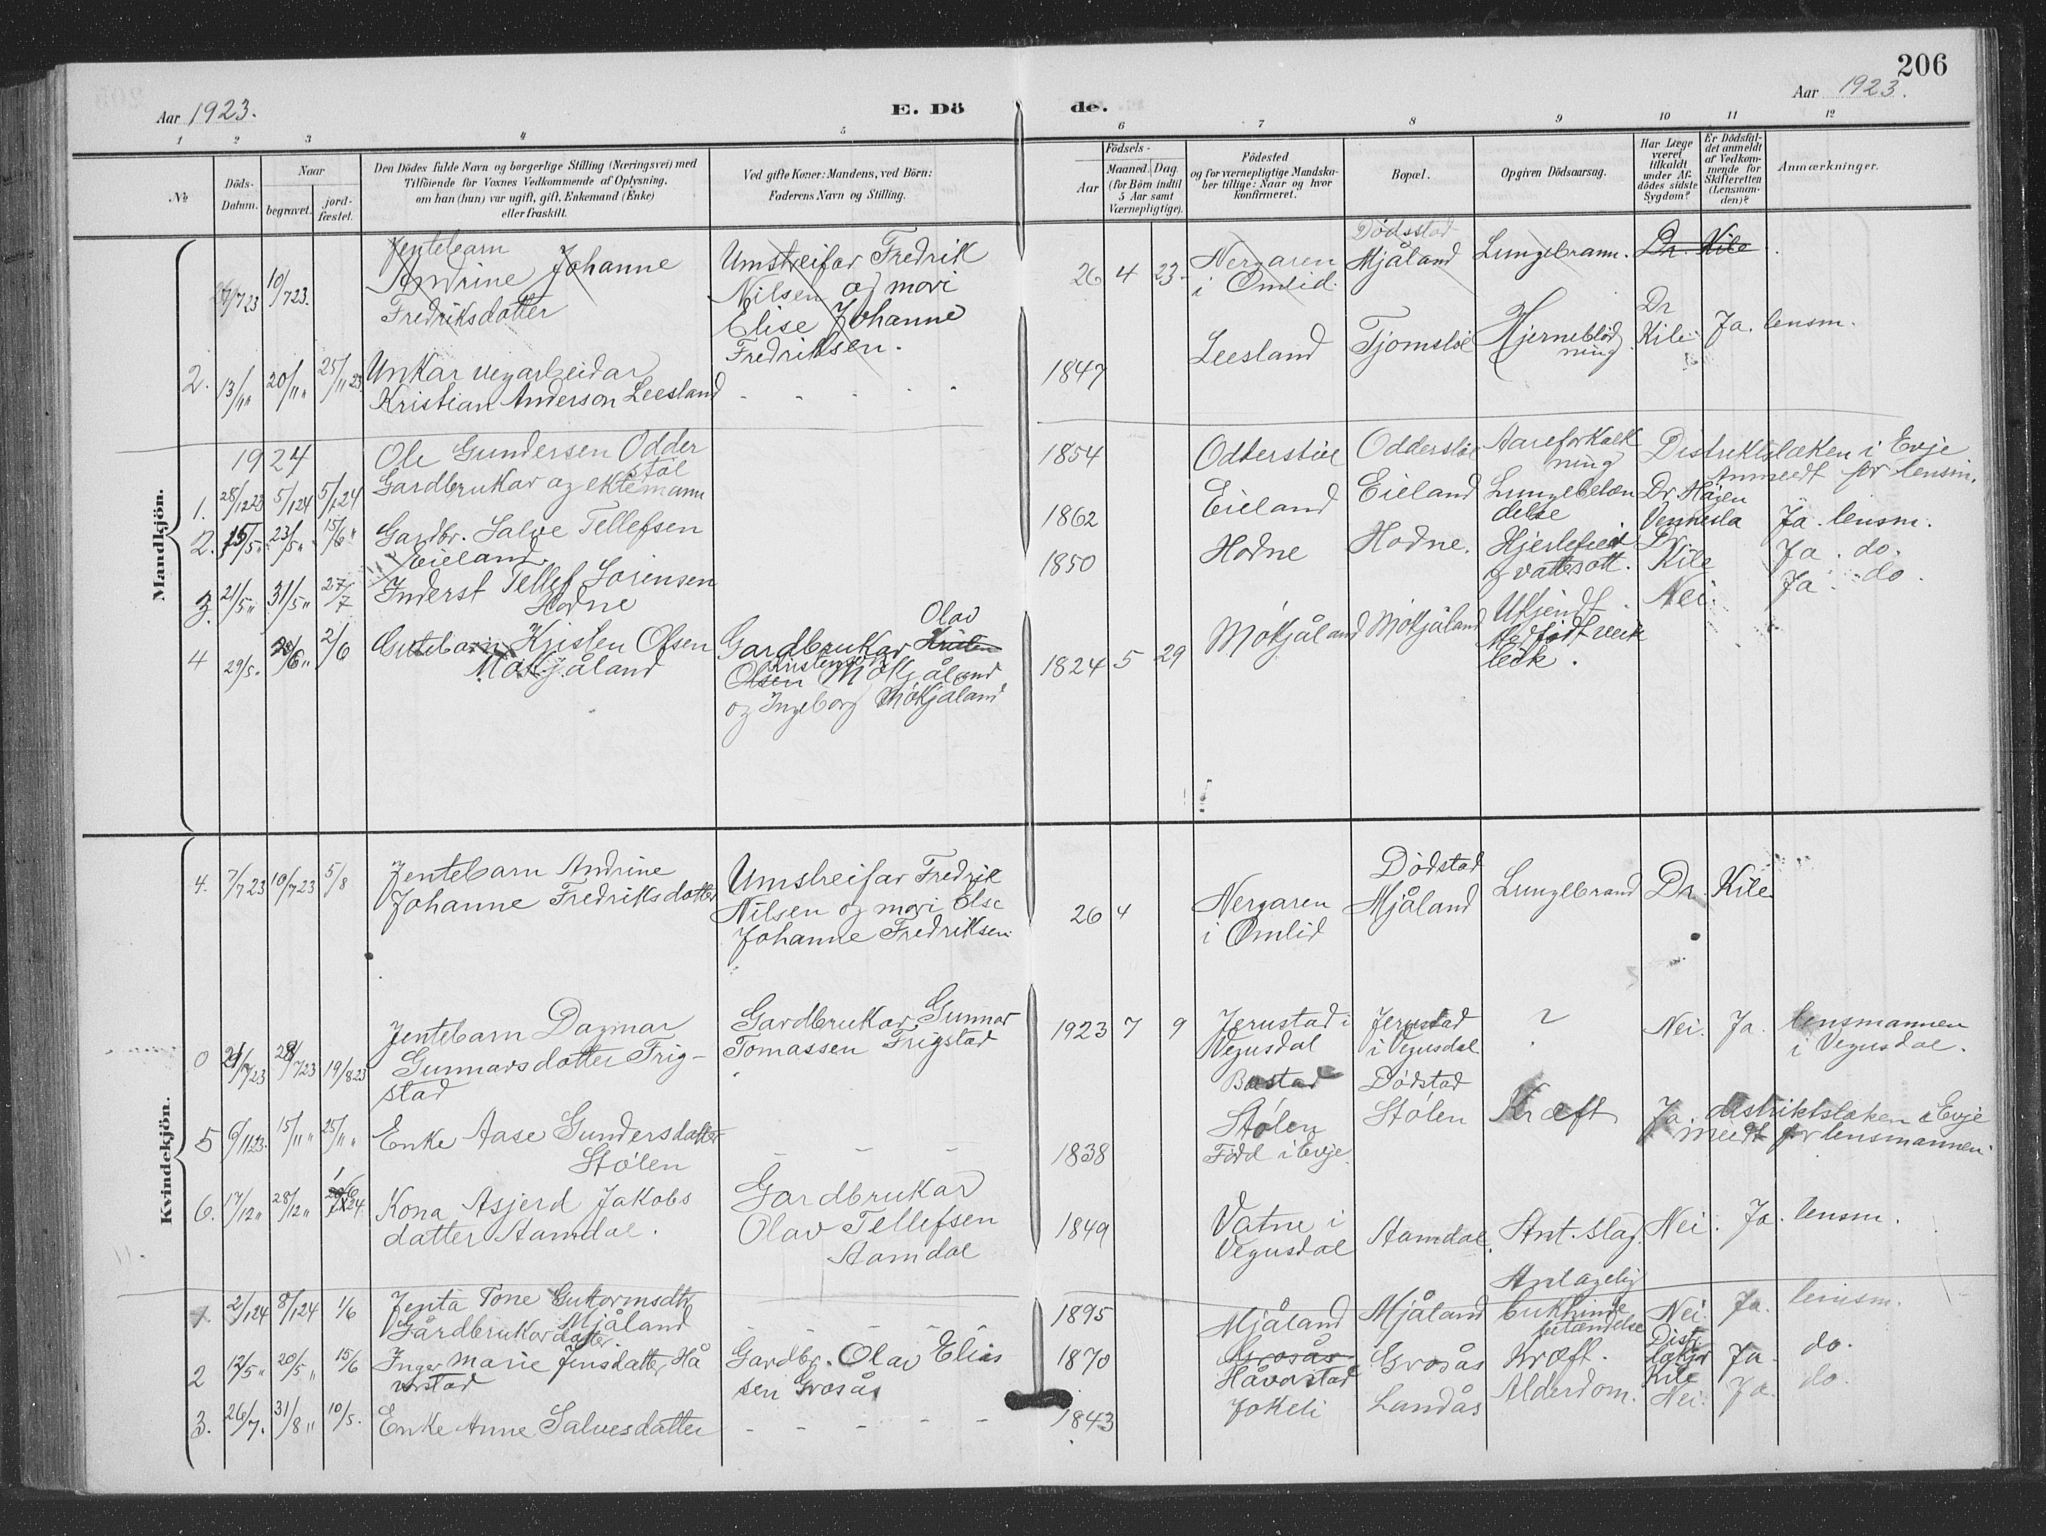 206
Aar 1923.
E. Dö
de.
Aar 1923.
1 2 3 4 5 6 7 8 9 10 11 12
No
Döds-
Datum.
Naar
begravet.
jord-
fæstet.
Den Dödes fulde Navn og borgerlige Stilling (Næringsvei) med
Tilföiende for Voxnes Vedkommende af Oplysning,
om han (hun) var ugift, gift, Enkemand (Enke)
eller fraskilt.
Ved gifte Koner: Mandens, ved Börn:
Faderens Navn og Stilling.
Födsels-
Aar
Maaned. Dag.
(for Börn indtil
5 Aar samt
Værnepligtige).
Födested
og for værnepligtige Mandska-
ber tillige: Naar og hvor
konfirmeret.
Bopæl.
Opgiven Dödsaarsag.
Har Læge
været
tilkaldt
under Af-
dödes sidste
Sygdom?
Er Dödsfal-
det anmeldt
af Vedkom-
mende for
Skifteretten
(Lensman-
den)?
Anmærkninger.
Mandkjön.
7/7 23 10/7 23. Jentebarn
Andrine Johanne
Fredriksdotter
Umstreifar Fredrik
Nilsen og mori
Elise Johanne
Fredriksen.
26 4 23 Nergaren
i Omlid.
Dödsstad
Mjåland
Lungebrann. Dr. Kile
2. 13/11 " 20/11 " 25/11 23 Unkar vegarbeidar
Kristian Anderson Leesland
1847 Leesland Tjomsloe Hjerneblöd
ning
Dr
Kile Ja. lensm.
1924
1. 28/12 23 5/1 24 5/1 24 Ole Gundersen Odder
stöl
Gardbrukar og ektemann
1854 Odderstöl Odderstöl Aareforkalk
ning
Distriktslæken i Evje
Anmeedt for lensm.
2. 15/5 " 23/5 " 15/6 " Gardbr. Salve Tellefsen
Eieland.
1862 Eieland Eieland Lungebetæn
delse
Dr. Högen
Vennesla Ja. lensm.
3. 21/5 " 31/5 " 27/7 Inderst Tellef Sorensen
Hodne
1850 Hodne Hodne. Hjertefeil
og vattesott.
Dr
Kile Ja. do.
4 29/5. 2/6 Gutebarn Kristen Olsen
Mökjåland
Gardbrukar Kristen
Olav
Olsen Mökjåland
Kristensen
og Ingeborg Mökjåland
1824 5 29 Mökjåland Mökjåland Ukjendt.
Medfödt veik
leik.
Nei. Ja. do.
Kvindekjön.
4. 7/7 23 10/7 23 5/8 Jentebarn Andrine
Johanne Fredriksdotter
Umstreifar Fredrik
Nilsen og mori Else
Johanne Fredriksen.
26 4 Nergaren
i Omlid
Dödstad
Mjåland
Lungebrand Dr. Kile
0 21/7 23 28/7 23 19/8 23 Jentebarn Dagmar
Gunnarsdotter Frig-
stad
Gardbrukar Gunnar
Tomassen Frigstad
1923 7 9 Jerustad i
Vegusdal
Jerustad
i Vegusdal
? Nei. Ja. lensmannen
i Vegusdal.
5 9/11 23. 15/11 " 25/11 " Enke Aase Gundersdatter
Stölen
1838 Bustad
Stölen
Född i Evje.
Dödstad
Stölen
Kræft Ja. distriktslæken i Evje
meedt for lensmannen.
6. 17/12 " 28/12 " Kona Asjerd Jakobs
datter Aamdal.
Gardbrukar
Olav Tellefsen
Aamdal
1849 Vatne i
Vegusdal
Aamdal. Ant. slag. Nei. Ja. lensm.
1. 2/1 24 8/1 24 1/6 Jenta Tone Gutormsdtr
Mjåland
Gårdbrukardatter.
1895 Mjåland Mjåland Antagelig
bukhinde
betændelse
Nei. Ja. lensm.
2 12/5 " 20/5 " 15/6 Inger Marie Jensdatter Hå
vorstad
Gardbr. Olav Elias
sen Grosås
1870 Grosås
Håvorstad
Grosås Kræft. Distr.
Lækjar
Kile
Ja. do.
3. 26/7. 31/8 " 10/5. Enke Anne Salvesdatter
1843 Jokeli Landås Alderdom. Nei. Ja. do.